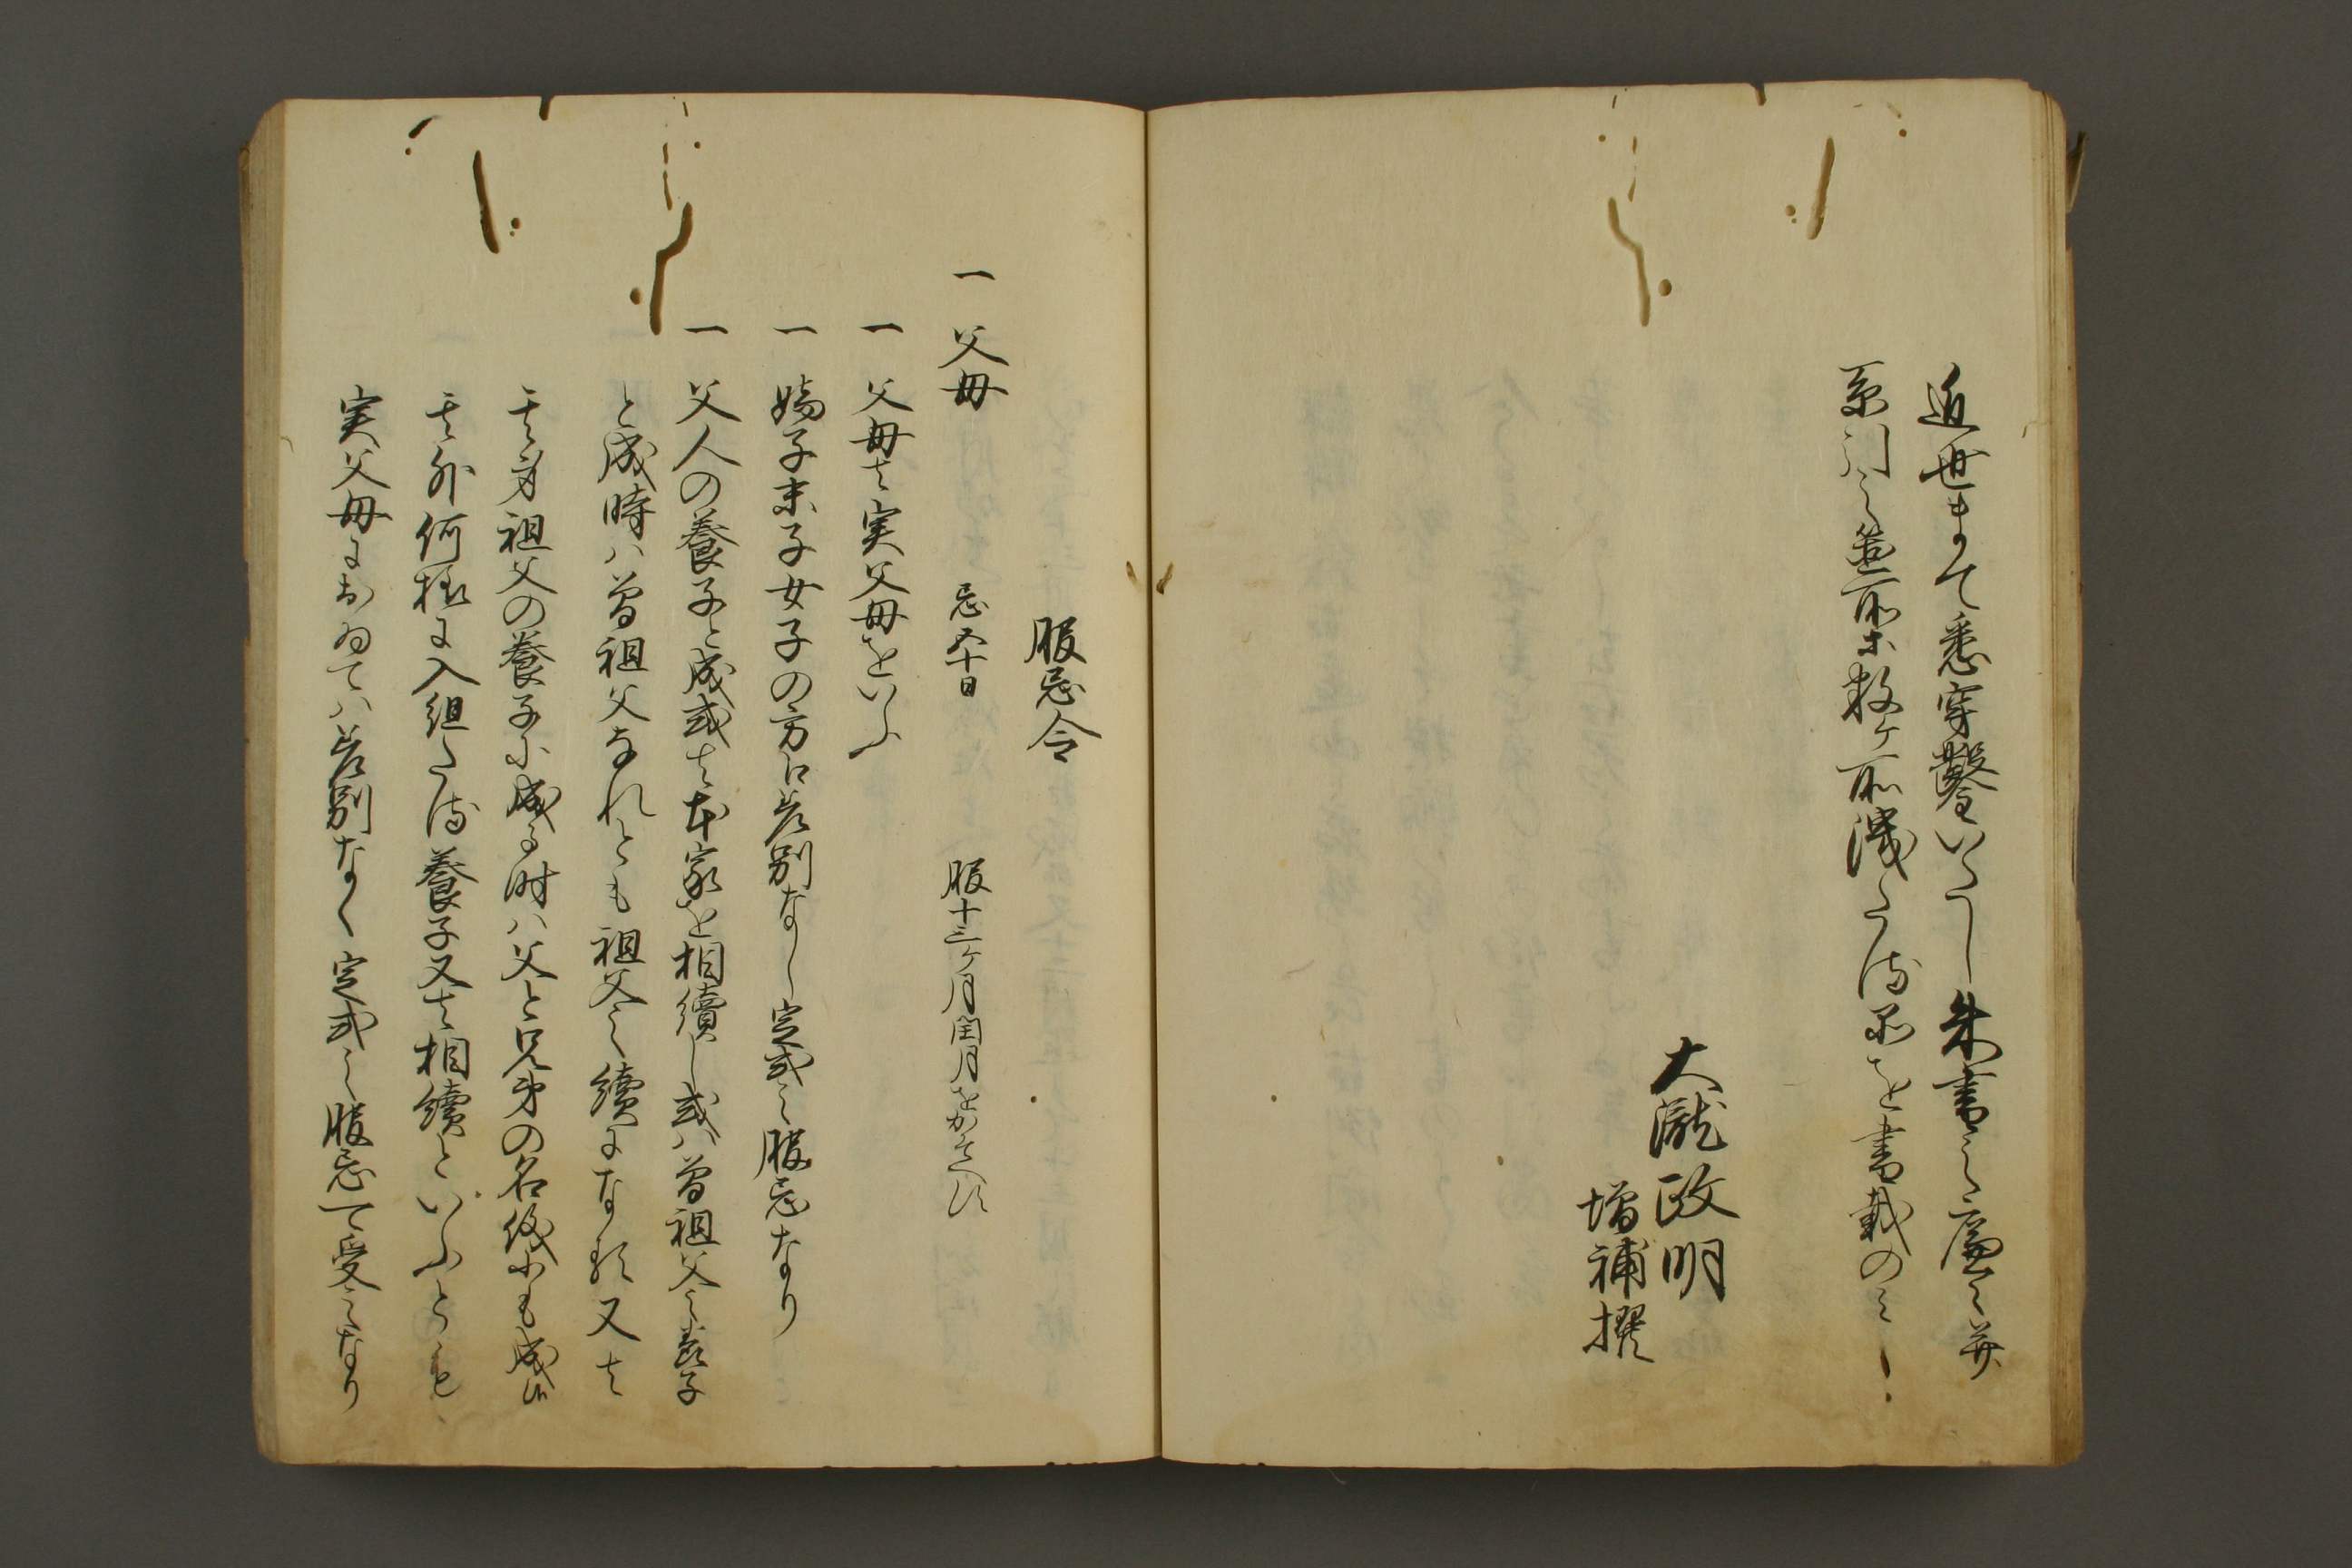 近世まて悉穿鑿いたし朱書之廉々并
系引之箇所等数ケ所洩たる所を書載のミ
大瀧政明
増補撰
服忌令
一 父母 忌五十日 服十三ヶ月閏月をかそへす
一 父母は実父母をいふ
一 嫡子末子女子の方に差別なし定式之服忌なり
一 父人の養子と成或は本家を相續し或ハ曽祖父之養子
と成時ハ曽祖父なれとも祖父之續になる又は
其身祖父の養子に成る時ハ父と兄弟の名跡にも成
其外何様に入組たる養子又は相續といふとも
実父母においてハ差別なく定式之服忌可受之なり